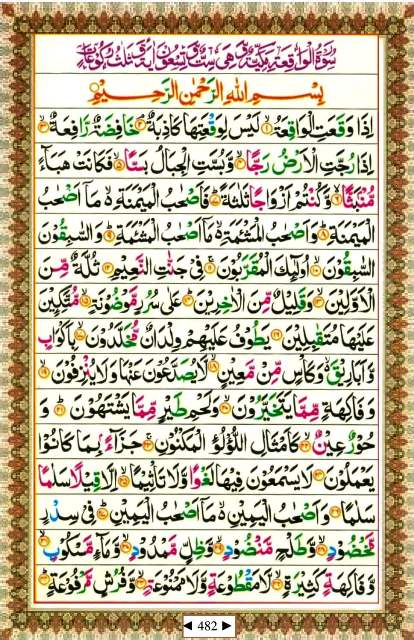 سُوْرَةُ الْوَاقِعَةِ مَكِّيَّةٌ وَّهِيَ سِتٌّ وَّتِسْعُوْنَ اٰيَةً وَّثَلٰثُ رُكُوْعَاتٍ
بِسْمِ اللّٰهِ الرَّحْمٰنِ الرَّحِيْمِ
اِذَا وَقَعَتِ الْوَاقِعَةُ ۙ۱ لَيْسَ لِوَقْعَتِهَا كَاذِبَةٌ ۘ۲ خَافِضَةٌ رَّافِعَةٌ ۙ۳
اِذَا رُجَّتِ الْاَرْضُ رَجًّا ۙ۴ وَّبُسَّتِ الْجِبَالُ بَسًّا ۙ۵ فَكَانَتْ هَبَآءً
مُّنْۢبَثًّا ۙ۶ وَّكُنْتُمْ اَزْوَاجًا ثَلٰثَةً ؕ۷ فَاَصْحٰبُ الْمَيْمَنَةِ ۙ مَاۤ اَصْحٰبُ
الْمَيْمَنَةِ ؕ۸ وَاَصْحٰبُ الْمَشْـَٔمَةِ ۙ مَاۤ اَصْحٰبُ الْمَشْـَٔمَةِ ؕ۹ وَالسّٰبِقُوْنَ
السّٰبِقُوْنَ ۚۙ۱۰ اُولٰٓئِكَ الْمُقَرَّبُوْنَ ۚ۱۱ فِيْ جَنّٰتِ النَّعِيْمِ ۱۲ ثُلَّةٌ مِّنَ
الْاَوَّلِيْنَ ۙ۱۳ وَقَلِيْلٌ مِّنَ الْاٰخِرِيْنَ ؕ۱۴ عَلٰى سُرُرٍ مَّوْضُوْنَةٍ ۙ۱۵ مُّتَّكِـِٕيْنَ
عَلَيْهَا مُتَقٰبِلِيْنَ ۱۶ يَطُوْفُ عَلَيْهِمْ وِلْدَانٌ مُّخَلَّدُوْنَ ۙ۱۷ بِاَكْوَابٍ
وَّاَبَارِيْقَ ۙ وَكَاْسٍ مِّنْ مَّعِيْنٍ ۙ۱۸ لَّا يُصَدَّعُوْنَ عَنْهَا وَلَا يُنْزِفُوْنَ ۙ۱۹
وَفَاكِهَةٍ مِّمَّا يَتَخَيَّرُوْنَ ۙ۲۰ وَلَحْمِ طَيْرٍ مِّمَّا يَشْتَهُوْنَ ؕ۲۱ وَ
حُوْرٌ عِيْنٌ ۙ۲۲ كَاَمْثَالِ اللُّؤْلُؤِ الْمَكْنُوْنِ ۚ۲۳ جَزَآءًۢ بِمَا كَانُوْا
يَعْمَلُوْنَ ۲۴ لَا يَسْمَعُوْنَ فِيْهَا لَغْوًا وَّلَا تَاْثِيْمًا ۙ۲۵ اِلَّا قِيْلًا سَلٰمًا
سَلٰمًا ۲۶ وَاَصْحٰبُ الْيَمِيْنِ ۙ مَاۤ اَصْحٰبُ الْيَمِيْنِ ؕ۲۷ فِيْ سِدْرٍ
مَّخْضُوْدٍ ۙ۲۸ وَّطَلْحٍ مَّنْضُوْدٍ ۙ۲۹ وَّظِلٍّ مَّمْدُوْدٍ ۙ۳۰ وَّمَآءٍ مَّسْكُوْبٍ ۙ۳۱
وَّفَاكِهَةٍ كَثِيْرَةٍ ۙ۳۲ لَّا مَقْطُوْعَةٍ وَّلَا مَمْنُوْعَةٍ ۙ۳۳ وَّفُرُشٍ مَّرْفُوْعَةٍ ؕ۳۴
◄ 482 ►